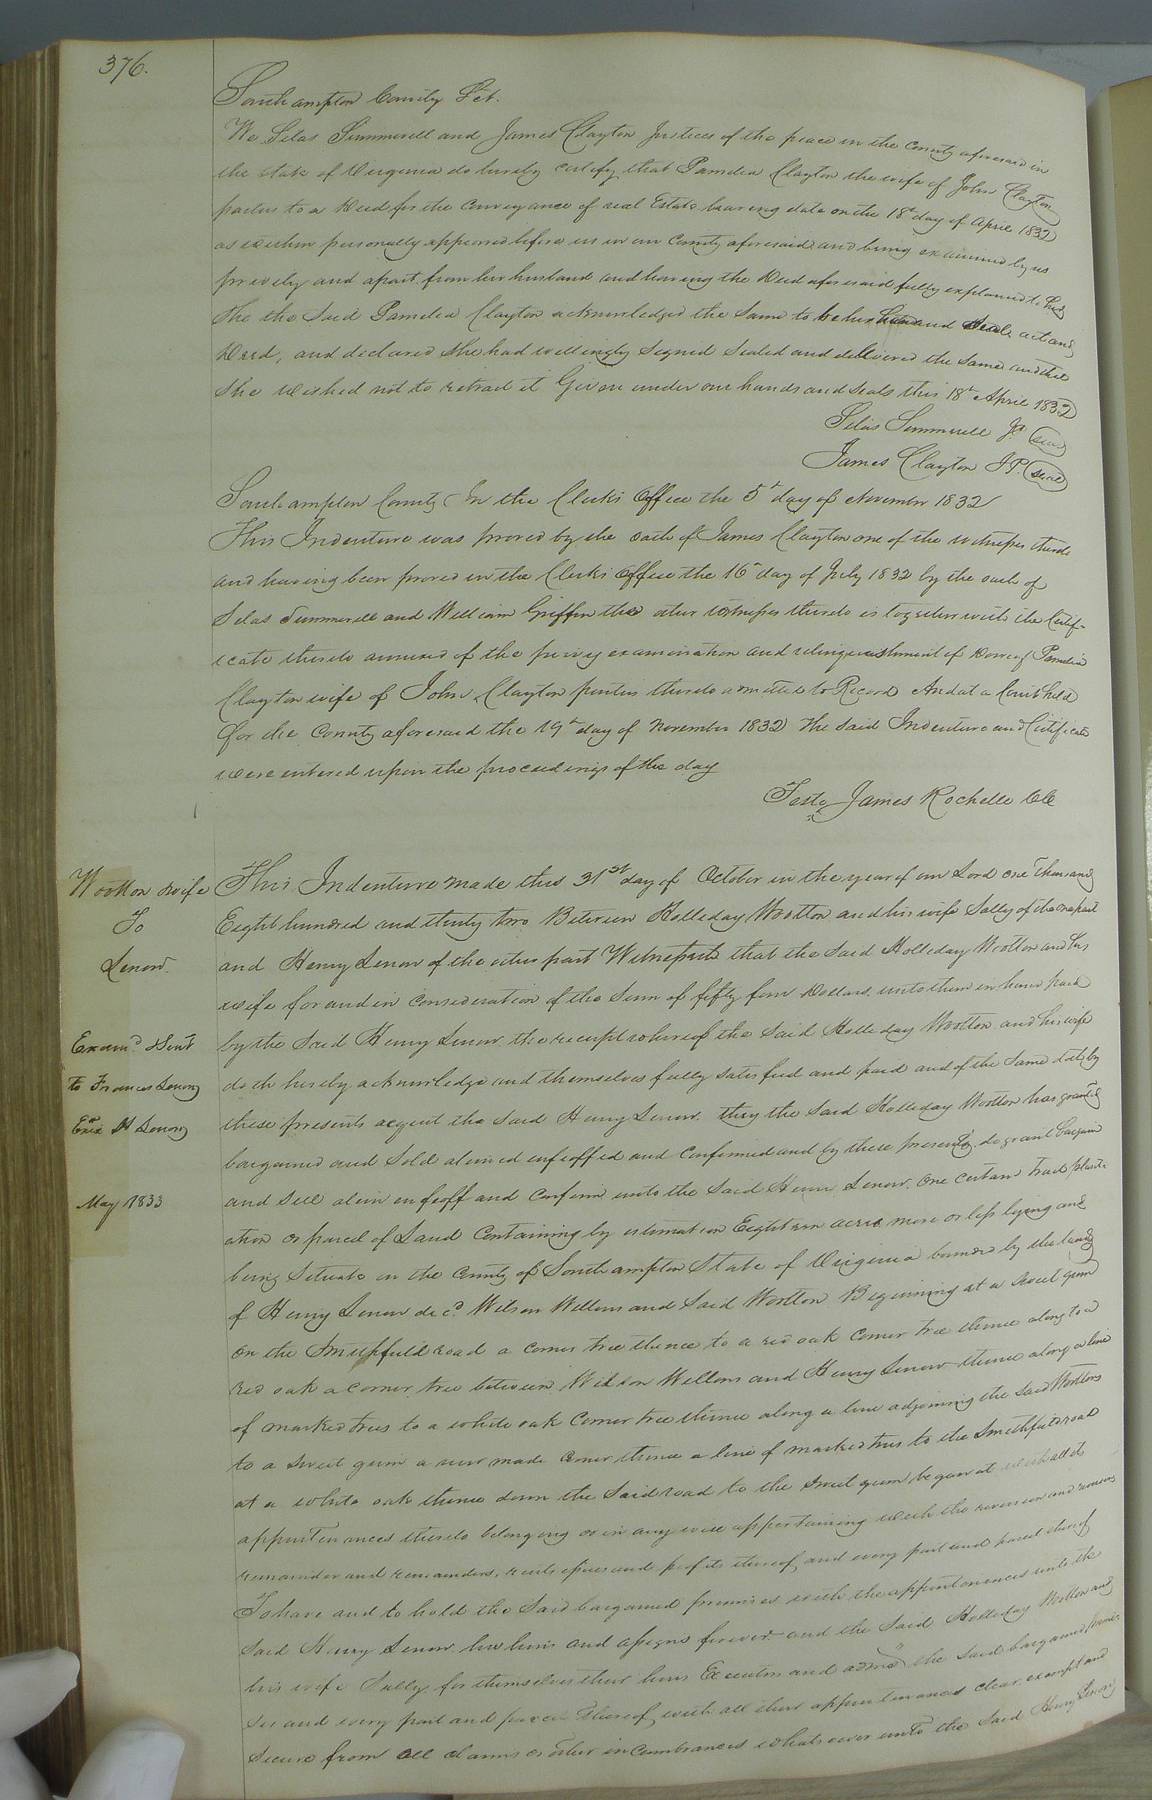 376.
Southampton County Sct.
We Silas Summerell and James Clayton Justices of the peace in the County aforesaid in
the state of Virginia do hereby certify that Pamelia Clayton the wife of John Clayton
parties to a Deed for the Conveyance of real Estate bearing date on the 18th day of April 1832
as within personally appeared before us in our County aforesaid and being examined by us
privily and apart from her husband and having the Deed aforesaid fully explained to her
She the Said Pamelia Clayton acknowledged the Same to be her act and
Deed, and declared She had willingly Signed Sealed and delivered the Same and that
She wished not to retract it Given under our hands and seals this 18th April 1832
Silas Summerell JP (seal)
James Clayton J.P. (seal)
Southampton County In the Clerks Office the 5th day of November 1832
This Indenture was proved by the oath of James Clayton one of the witnesses thereto
and having been proved in the Clerks Office the 16th day of July 1832 by the oath of
Silas Summerell and William Griffin the other witnesses thereto is together with the Certif-
icate thereto annexed of the privy examination and relinquishment of Dower of Pamelia
Clayton wife of John Clayton parties thereto admitted to Record And at a Court held
for the County aforesaid the 19th day of November 1832 The Said Indenture and Certificate
were entered upon the proceedings of the day
Teste James Rochelle ClC
Wootton & wife
To
Lenow.
Examd. & Sent
to Frances Lenow
Exx H Lenow
May 1833
This Indenture made this 31st day of October in the year of our Lord one Thousand
Eight hundred and thirty two Between Holleday Wootton and his wife Sally of the one part
and Henry Lenow of the other part Witnesseth that the Said Holleday Wootton and his
wife for and in Consideration of the Sum of fifty four Dollars, unto them in hand paid
by the Said Henry Lenow the receipt whereof the Said Holleday Wootton and his wife
doth hereby acknowledge and themselves fully satisfied and paid and of the Same doth by
these presents acquit the Said Henry Lenow. they the Said Holleday Wootton has granted
bargained and Sold aliened enfeoffed and Confirmed and by these presents do grant bargain
and Sell alien enfeoff and Confirm unto the Said Henry Lenow. One certain tract planta-
ation or parcel of Land Containing by estimation Eighteen acres more or less lying and
being Situate in the County of Southampton State of Virginia bounded by the lands
of Henry Lenow decd. Wilson Wellons and Said Wootton Beginning at a Sweet gum
on the Smithfield road a corner tree thence to a red oak Corner tree thence along to a
red oak a corner tree between Wilson Wellons and Henry Lenow thence along a line
of marked trees to a white oak Corner tree thence along a line adjoining the Said Woottons
to a Sweet gum a new made corner thence a line of marked trees to the Smithfield road
at a white oak thence down the Said road to the Sweet gum began at with all it
appurtenances thereto belonging or in any wise appertaining with the reversion and reversions
remainder and remainders, rents issues and profits thereof and every part and parcel thereof
To have and to hold the Said bargained premises with the appurtenances unto the
Said Henry Lenow his heirs and assigns forever. and the Said Holleday Wootton and
his wife Sally for themselves their heirs Executors and admrs the Said bargained premi-
ses and every part and parcel thereof with all their appurtenances clear exempt and
Secure from all claims or other incumbrances whatsoever unto the Said Henry Lenow